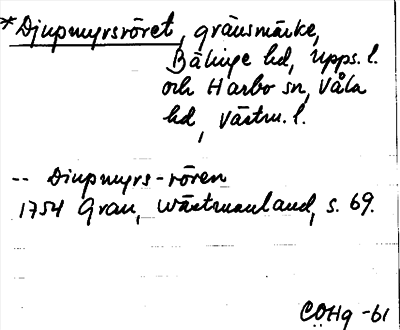 *Djupmyrsröret, gränsmärke,
Bälinge hd, Upps. l.
och Harbo sn, Våla
hd, Västm. l.
-- Diupmyrs-rören
1754 Grau, Wästmanland, s. 69.
CÖHg -61